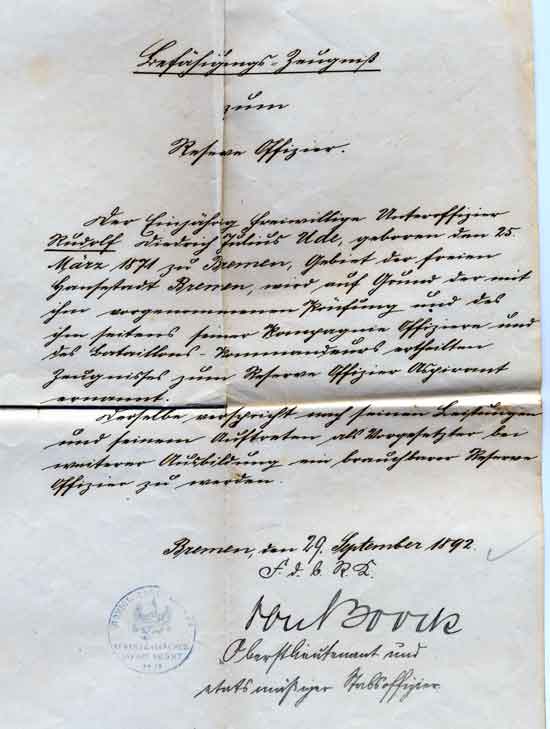 Befähigungs-Zeugniß
zum
Reserve Offizier.
Der Einjährig Freiwillige Unteroffizier
Rudolf Diedrich Julius Ude, geboren den 25.
März 1871 zu Bremen, Gebiet der freien
Hansestadt Bremen, wird auf Grund der mit
ihm vorgenommenen Prüfung und des
ihm seitens seiner Kompagnie Offiziere und
des Bataillons-Kommandeurs ertheilten
Zeugnisses zum Reserve Offizier Aspirant
ernannt.
Derselbe verspricht nach seinen Leistungen
und seinem Auftreten als Vorgesetzter bei
weiterer Ausbildung ein brauchbarer Reserve
Offizier zu werden.
Bremen, den 29. September 1892.
F. d. b. R. K.
Oberstlieutenant und
etatsmäßiger Stabsoffizier